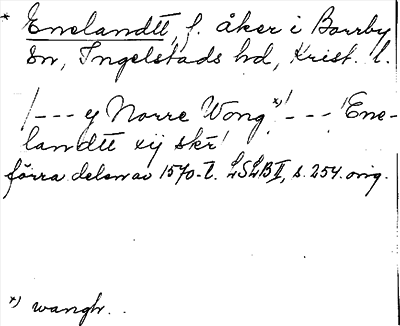 * Enelandtt, f. åker i Borrby
sn, Ingelstads hd, Krist. l.
/--- y Norre Wong *)/ --- /Ene-
landtt xij skr/
förra delen av 1570-t. LSLB II, s. 254. orig.
*) wangh.